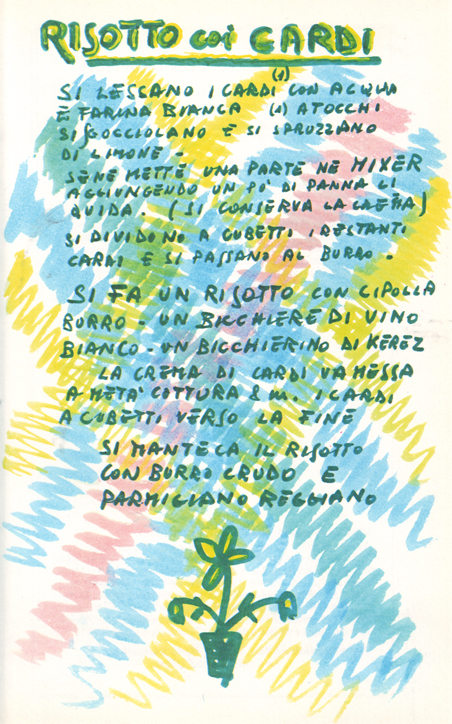 RISOTTO coi CARDI
(1)
SI LESSANO I CARDI CON ACQUA
E FARINA BIANCA (1) A TOCCHI
SI SGOCCIOLANO E SI SPRUZZANO
DI LIMONE -
SENE METTE UNA PARTE NE MIXER
AGGIUNGENDO UN PO' DI PANNA LI
QUIDA. (SI CONSERVA LA CREMA)
SI DIVIDONO A CUBETTI I RESTANTI
CARDI E SI PASSANO AL BURRO.
SI FA UN RISOTTO CON CIPOLLA
BURRO - UN BICCHIERE DI VINO
BIANCO - UN BICCHIERINO DI KEREZ
LA CREMA DI CARDI VA MESSA
A META' COTTURA 8 m. I CARDI
A CUBETTI VERSO LA FINE
SI MANTECA IL RISOTTO
CON BURRO CRUDO E
PARMIGIANO REGGIANO